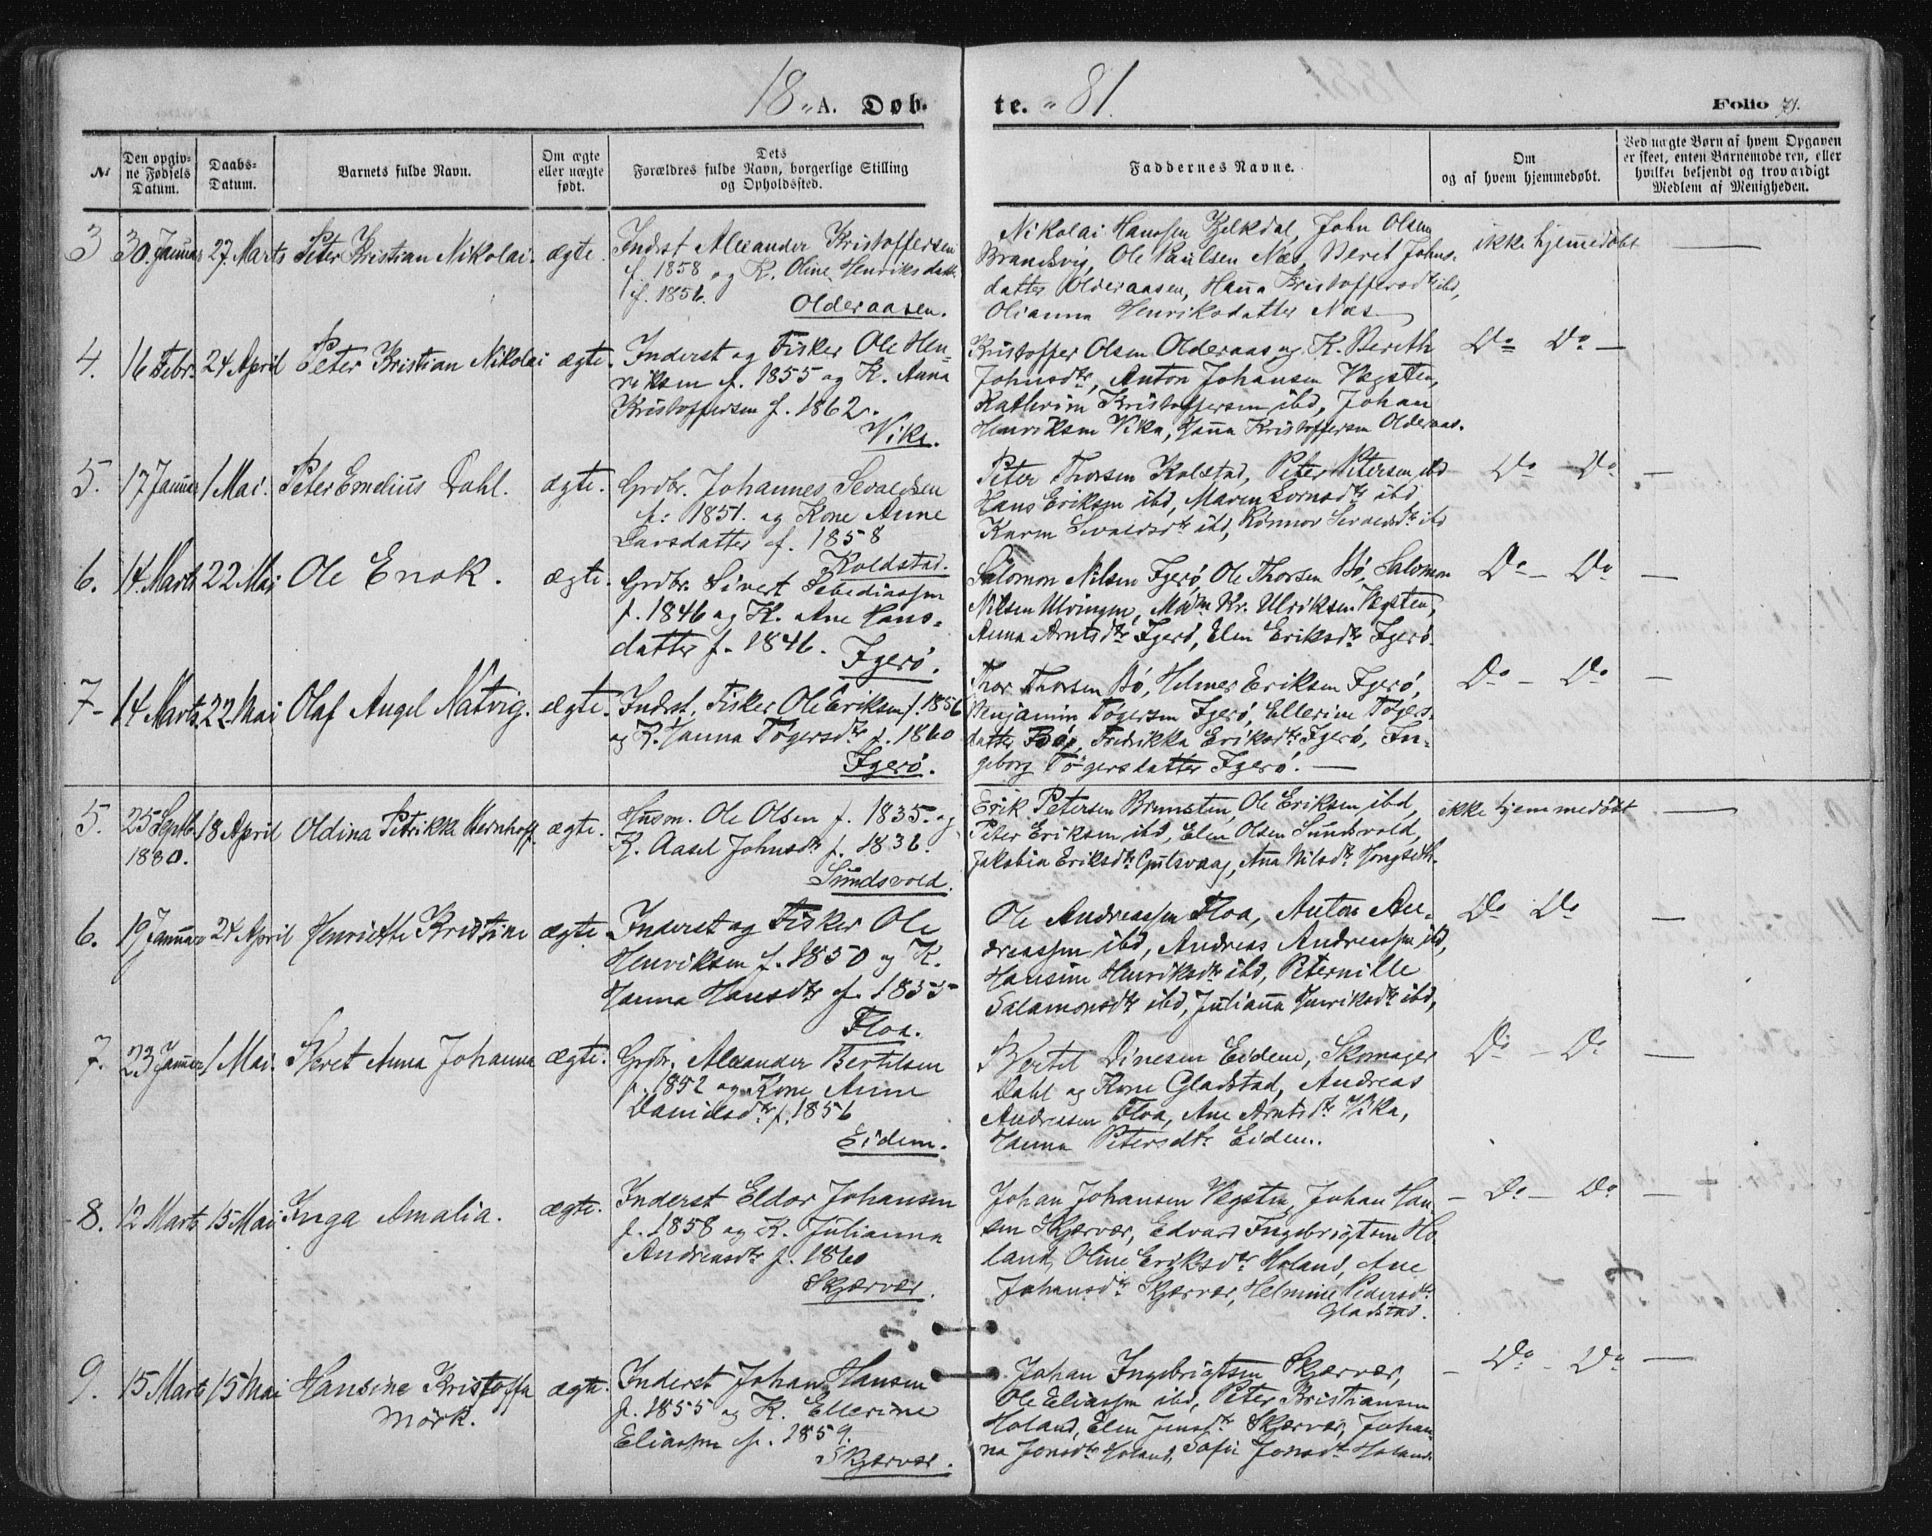 18 " A. Døb-
te. " 81.
Folio 71.
№
Den opgiv-
ne Fødsels
Datum.
Daabs-
Datum.
Barnets fulde Navn.
Om ægte
eller uægte
født.
Dets
Forældres fulde Navn, borgerlige Stilling
og Opholdssted.
Faddernes Navne.
Om
og af hvem hjemmedøbt.
Ved uægte Børn af hvem Opgaven
er skeet, enten Barnemoderen, eller
hvilket bekjendt og troværdigt
Medlem af Menigheden.
3 30. Januar 27. Marts Peter Kristian Nikolai. ægte.
Inderst Alexander Kristoffersen
f. 1858 og K. Oline Henriksdatt.
f. 1856.
Olderaasen.
Nikolai Hanssen John Olsen
Brandsvig, Ole Paulsen Næs, Beret Johns-
datter Olderaasen, Hanna Kristoffersdtr ibd,
Olianna Henriksdatter Næs
ikke hjemmedøbt
4. 16 Febr. 24 April Peter Kristian Nikolai ægte.
Inderst og Fisker Ole Hen-
riksen f. 1855 og K. Anna
Kristoffersen f. 1862.
Vika.
Kristoffer Olsen Olderaas og K. Berith
Johnsdtr, Anton Johansen Vegsten,
Kathrine Kristoffersen ibd, Johan
Henriksen Vika, Hanna Kristoffersen Olderaas.
Do Do —
5. 17 Januar 1 Mai. Peter Emelius Dahl. ægte.
Grdbr. Johannes Sevaldsen
f. 1851. og Kone Anne
Larsdatter f. 1858
Koldstad.
Peter Thorsen Kolstad, Peter Petersen ibd
Hans Eriksen ibd, Maren ibd,
Karen Sivaldsdtr ibd, Rønnov Sevaldsdtr ibd
Do Do —
6. 14. Marts 22 Mai Ole Enok. ægte.
Grdbr. Sivert Sebediassen
f. 1846 og K. Ane Hans-
datter f. 1846.
Igerø.
Salomon Nilsen Igerø, Ole Thorsen Bø, Salomon
Nilsen Ulvingen, Kr. Ulriksen Vegsten,
Anna Arntsdtr Igerø, Elen Eriksdtr Igerø.
Do — Do —
7- 14 Marts 22 Mai Olaf Angel Natvig. ægte.
Inderst, Fisker Ole Eriksen f. 1856
og K. Hanna Tøgersdtr f. 1860
Igerø.
Thor Thorsen Bø, Helmer Eriksen Igerø,
Benjamin Tøgersen Igerø, Ellerine Tøgers-
datter Bø, Fredrikka Eriksdtr Igerø, In-
geborg Tøgersdatter Igerø. —
Do — Do —
5. 25 Septb.
1880. 18 April Oldina Petrikke Bernhoff. ægte.
Husm. Ole Olsen f. 1835 og
K. Aasel Johnsdtr f. 1836.
Sundsvold.
Erik Petersen Bremsten, Ole Eriksen ibd,
Peter Eriksen ibd, Elen Olsen Sundsvold,
Jakobia Eriksdtr Gulsvaag, Ana Nilsdtr
ikke hjemmedøbt —
6. 19 Januar 24 April Henriette Kristine ægte.
Inderst og Fisker Ole
Henriksen f. 1850 og K.
Hanna Hansdtr f. 1855
Floa.
Ole Andreassen Floa, Anton An-
dreassen ibd, Andreas Andreassen ibd,
Hansine Henriksdtr ibd, Peternille
Salamonsdtr ibd, Julianna Henriksdtr ibd,
Do Do —
7. 23 Januar 1 Mai. Beret Anna Johanna ægte.
Grdbr. Alexander Bertilsen
f. 1852 og Kone Anne
Danielsdtr f. 1856
Eidem.
Bertel Dinesen Eidem, Skomager
Dahl og Kone Gladstad, Andreas
Andresen Floa, Ane Arntsdtr Vika,
Hanna Petersdtr Eidem.
Do — Do —
8. 12 Marts 15 Mai Inga Amalia. ægte.
Inderst Eldor Johansen
f. 1858 og K. Julianna
Andreasdtr f. 1860
Skjærvær.
Johan Johansen Vegsten, Johan Han-
sen Skjærvær, Edvard Ingebrigtsen Ho-
land, Oline Eriksdtr Holand, Ane
Johansdtr Skjærvær, Helmine Pedersdtr
Gladstad.
— Do — Do —
9. 15 Marts 15 Mai Hansine Kristoffa
Mørk. ægte.
Inderst Johan Hansen
f. 1855 og K. Ellerine
Eliassen f. 1859.
Skjærvær.
Johan Ingebrigtsen Skjærvær,
Ole Eliassen ibd, Peter Kristiansen
Holand, Elen Jensdtr Skjærvær, Johan-
na Jonsdtr Holand, Sofie Jonsdtr Holand
— Do — Do —